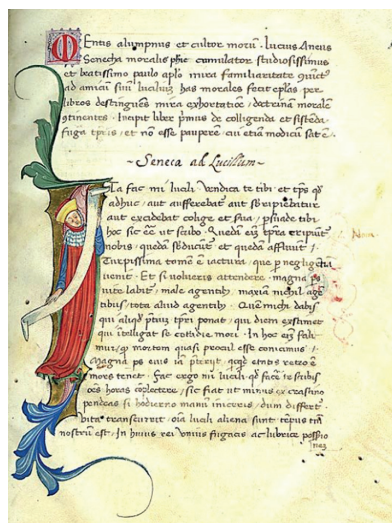 Mentis alumpnus et cultor morũ. Lucius Aneus
Senecha moralis phie cumulator studiosissimus
et beatissimo paulo aplo mira familiaritate
ad amicũ suũ luciluʒ has morales fecit eplas per
libros destinguẽs mira exhortatiõe, doctrinã moralẽ
ↄtinentes. Incipit liber pimus de colligenda et sistẽda
fuga tpris, et nõ esse pauperẽ cui etiã modicũ sat ẽ.
Seneca ad Lucillum
Ita fac mi lucili. vendica te tibi et tps qđ
adhuc, aut aufferebat aut
aut excidebat collige et sua, psuade tibi
hoc sic eẽ ut scribo. Quedã eiʒ tpra eripiũt
nobis, quedã sbducũt et quedã affluũt.
Turpissima tamẽ ẽ iactura, que p negligẽtiã
uenit. Et si uolueris attendere. magna ps
uite labit, male agentib, maxia nichil agẽ
tibus, tota aliud agentib. Quẽ michi dabis
qui aliqđ ptium tpri ponat, qui diem extimet
qui ĩtelligat se cotidie mori. In hoc eiʒ fali
mur, qđ mortem quasi procul esse
magna ps eius iã pterijt, etatis retro ẽ
mors tenet. Fac ergo mi lucili qđ facẽ te scribis
oẽs horas cõplectere, sic fiat ut minus ex crastino
pendeas si hodierno manũ iniceris, dum differt
vita transcurrit. oĩa lucili aliena sunt tẽpus tm̃
nostrũ est. In huius rei vnius fugacis ac lubrice possio